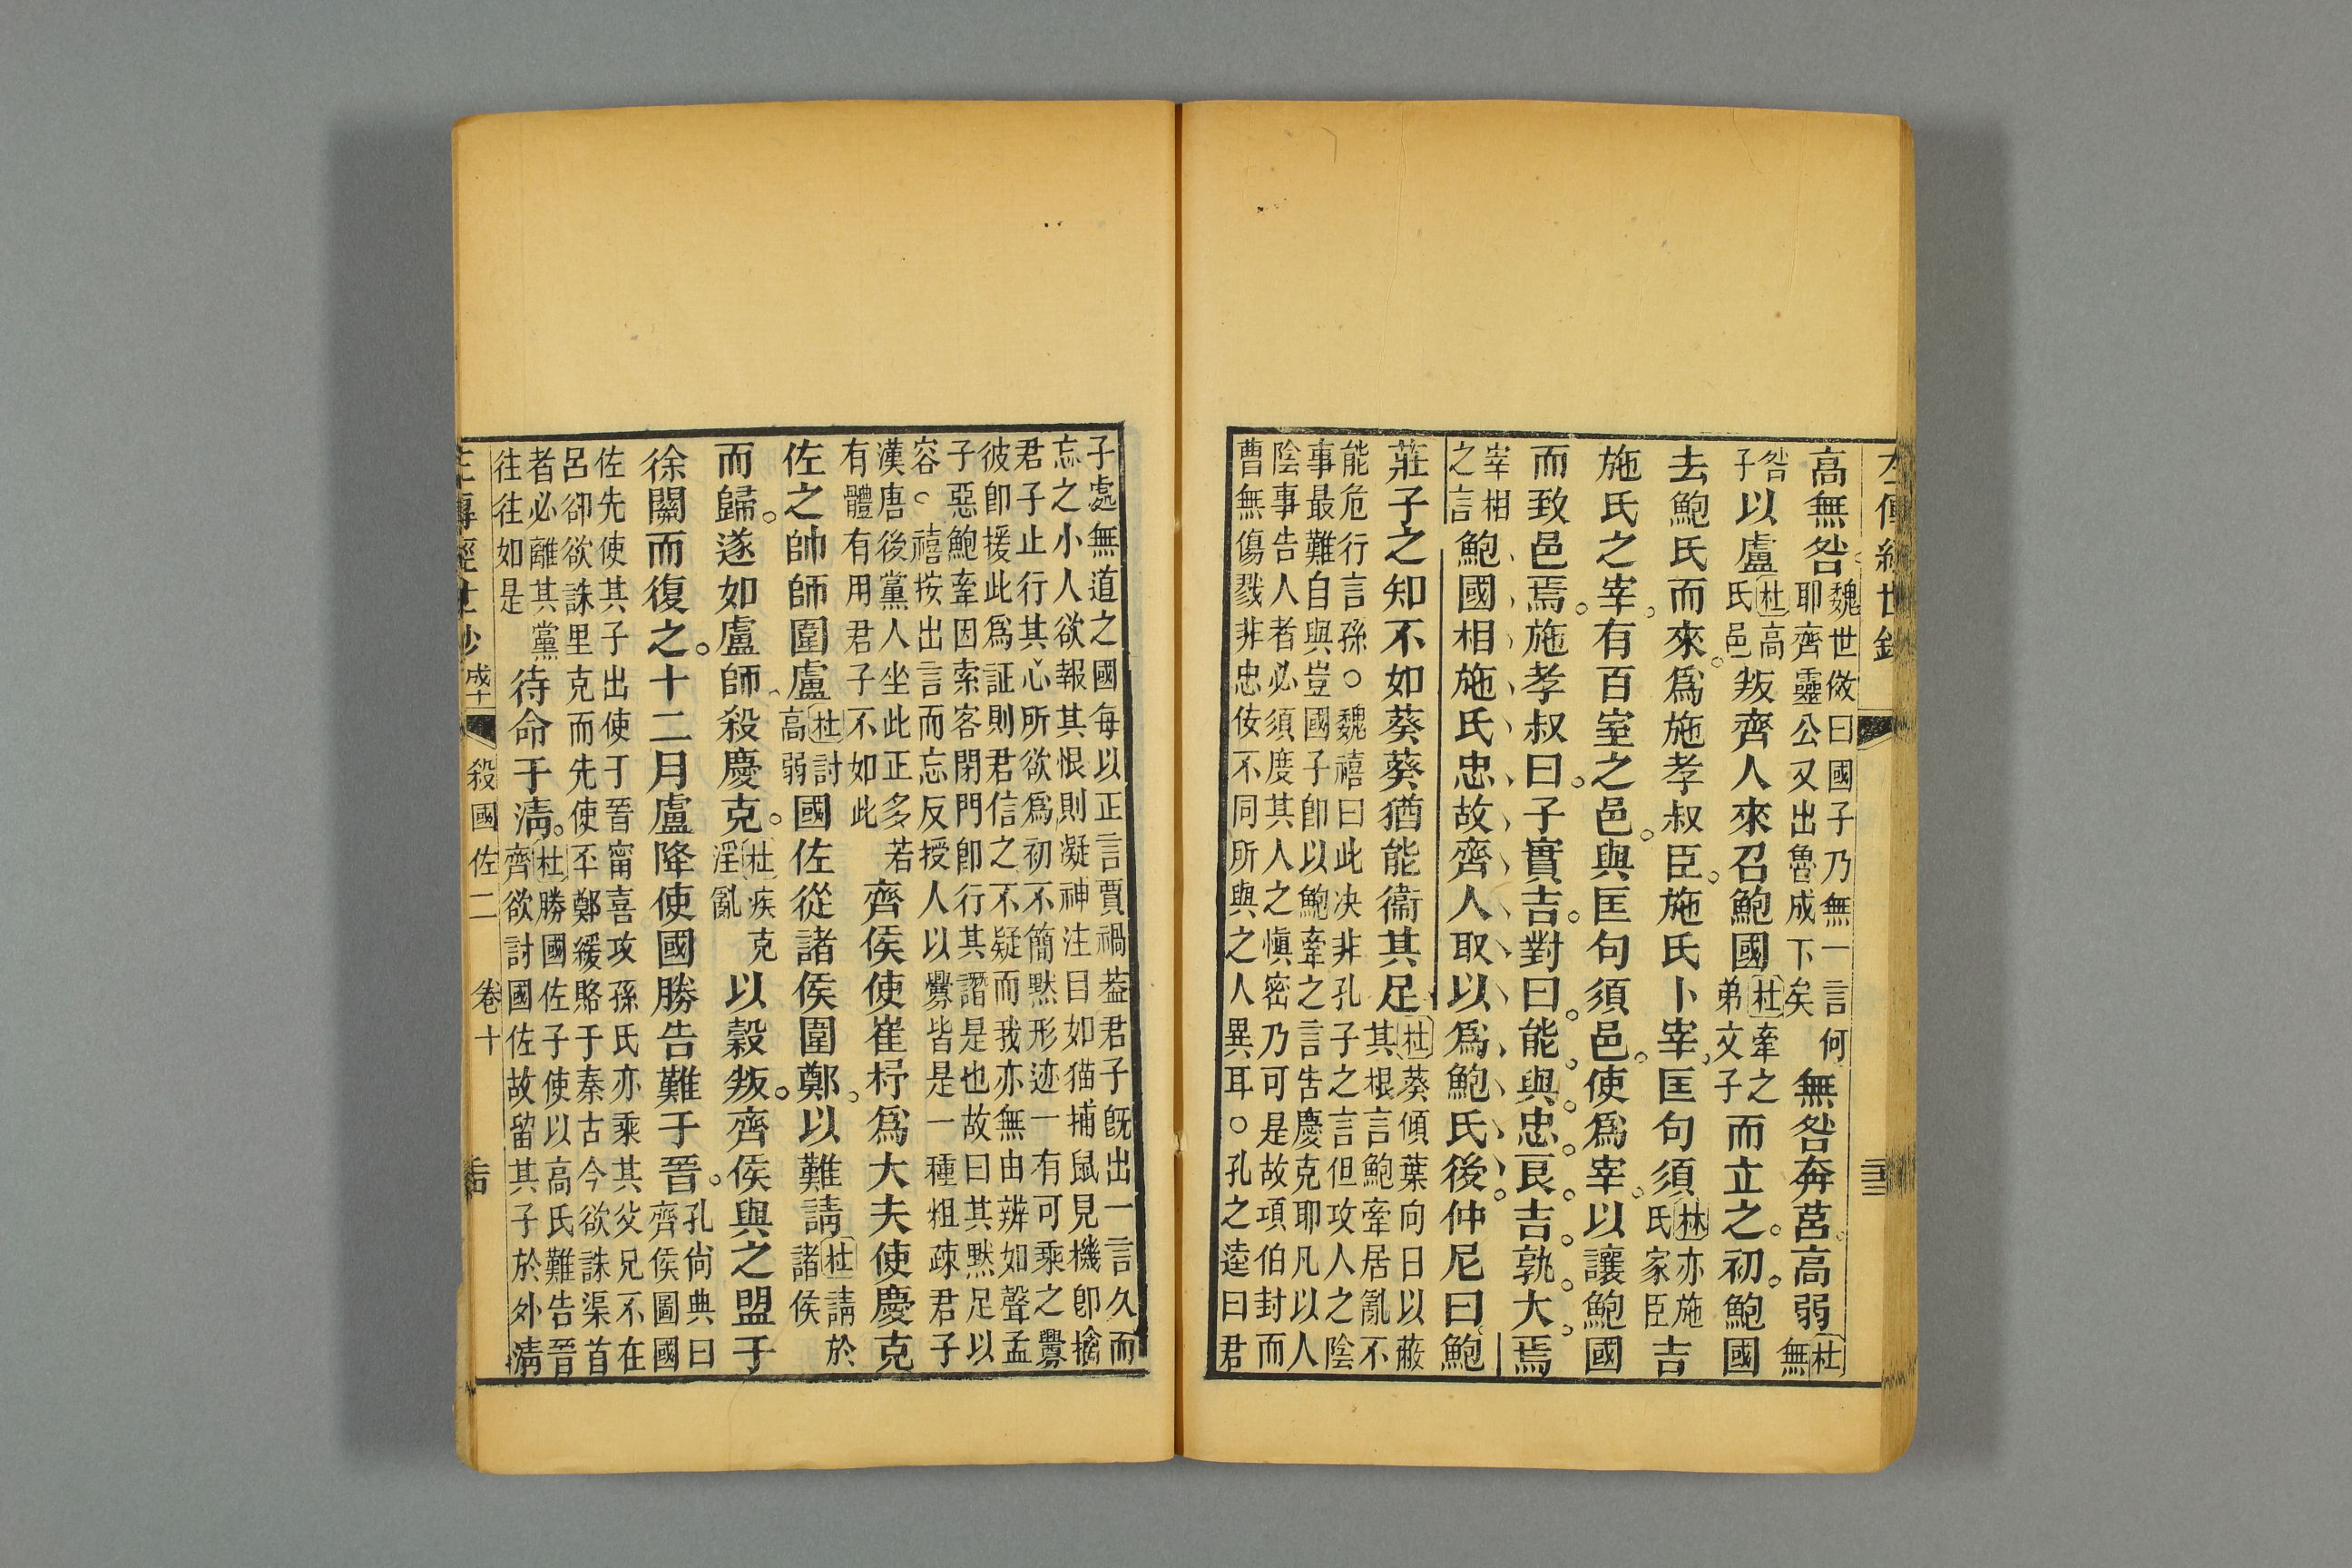 左傳經世鈔
高無咎魏世傚曰國子乃無一言何耶齊靈公又出魯成下矣無咎奔莒高弱杜無
咎子以盧杜高氏邑叛齊人來召鮑國杜牽之弟文子而立之初鮑國
去鮑氏而來爲施孝叔臣施氏卜宰匡句須林亦施氏家臣吉
施氏之宰有百室之邑與匡句須邑使爲宰以讓鮑國
而致邑焉施孝叔曰子實吉對曰能與忠良吉孰大焉
宰相之言鮑國相施氏忠故齊人取以爲鮑氏後仲尼曰鮑
莊子之知不如葵葵猶能衞其足杜葵傾葉向日以蔽其根言鮑牽居亂不
能危行言孫○魏禧曰此决非孔子之言但攻人之陰
事最難自與豈國子卽以鮑牽之言告慶克耶凡以人
陰事告人者必須度其人之愼密乃可是故項伯封而
曹無傷戮非忠佞不同所與之人異耳○孔之逵曰君
子處無道之國每以正言賈禍葢君子旣出一言久而
忘之小人欲報其恨則凝神注目如猫捕鼠見機卽擒
君子止行其心所欲爲初不簡黙形迹一有可乘之釁
彼卽援此爲証則君信之不疑而我亦無由辨如聲孟
子惡鮑牽因索客閉門卽行其譖是也故曰其黙足以
容○禧按出言而忘反授人以釁皆是一種粗疎君子
漢唐後黨人坐此正多若
有體有用君子不如此齊侯使崔杼爲大夫使慶克
佐之帥師圍盧杜討高弱國佐從諸侯圍鄭以難請杜請於諸侯
而歸遂如盧師殺慶克杜疾克淫亂以穀叛齊侯與之盟于
徐關而復之十二月盧降使國勝告難于晉孔尙典曰齊侯圖國
佐先使其子出使于晉甯喜攻孫氏亦乘其父兄不在
呂郤欲誅里克而先使丕鄭緩賂于秦古今欲誅渠首
者必離其黨
往往如是待命于淸杜勝國佐子使以高氏難告晉齊欲討國佐故留其子於外淸
左傳經世鈔 成十 殺國佐二 卷十